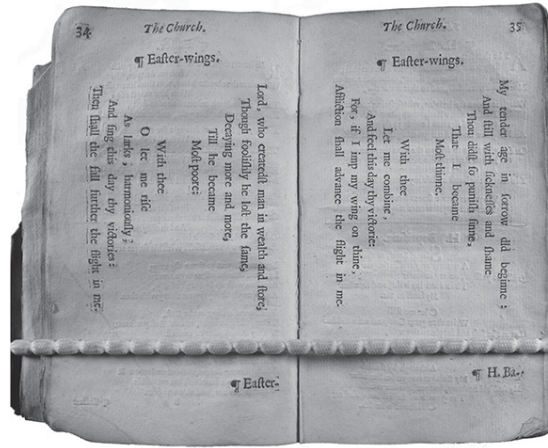 34 The Church.
¶ Eaſter-wings.
Lord, who createdſt man in wealth and ſtore,
Though fooliſhly he loſt the ſame,
Decaying more and more,
Till he became
Moſt poore:
With thee
O let me riſe
As larks, harmoniouſly,
And ſing this day thy victories:
Then ſhall the fall further the flight in me.
¶ Eaſter-
The Church. 35
¶ Eaſter-wings.
My tender age in ſorrow did beginne :
And ſtill with ſickneſſes and ſhame
Thou didſt ſo puniſh ſinne,
That I became
Moſt thinne.
With thee
Let me combine,
And feel this day thy victorie:
For, if I imp my wing on thine,
Affliction ſhall advance the flight in me.
¶ H. Ba-